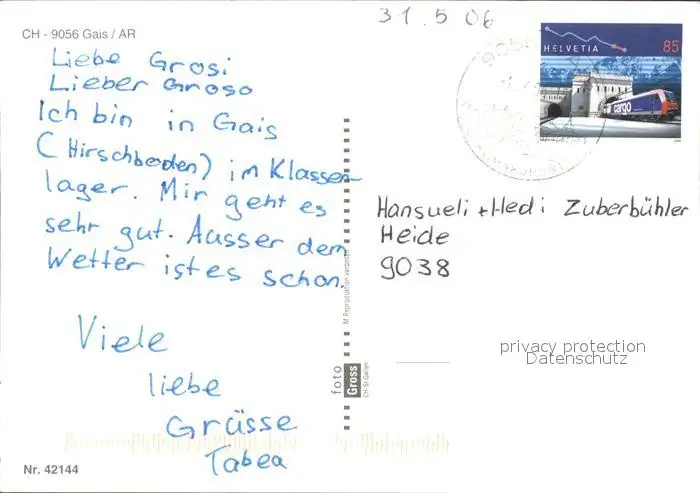 31.5 06
CH - 9056 Gais / AR
Liebe Grosi
Lieber Groso
Ich bin in Gais
(Hirschboden) im Klassen-
lager. Mir geht es
sehr gut. Ausser dem
Wetter ist es schon.
Viele
liebe
Grüsse
Tabea
Nr. 42144
HELVETIA
85
cargo
9056
Hansueli + Hedi Zuberbühler
Heide
9038
M Reproduction verboten
foto Gross
CH-St.Gallen
privacy protection
Datenschutz